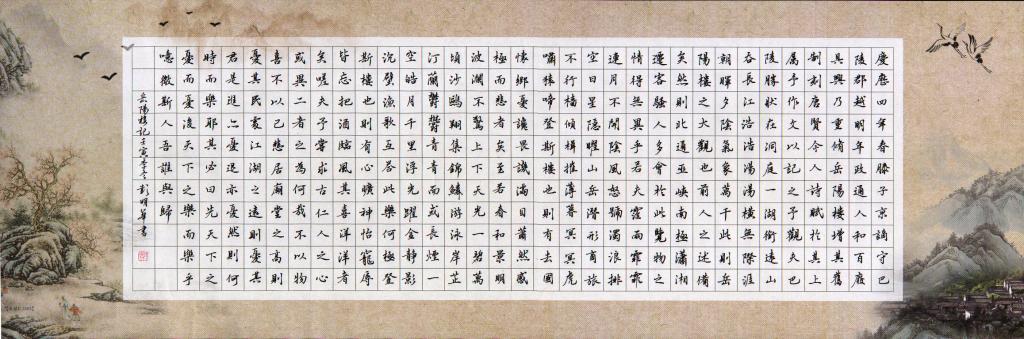 慶曆四年春滕子京謫守巴
陵郡越明年政通人和百廢
具興乃重修岳陽樓增其舊
制刻唐賢今人詩賦於其上
屬予作文以記之予觀夫巴
陵勝狀在洞庭一湖銜遠山
吞長江浩浩湯湯橫無際涯
朝暉夕陰氣象萬千此則岳
陽樓之大觀也前人之述備
矣然則北通巫峽南極瀟湘
遷客騷人多會於此覽物之
情得無異乎若夫霪雨霏霏
連月不開陰風怒號濁浪排
空日星隱曜山岳潛形商旅
不行檣傾楫摧薄暮冥冥虎
嘯猿啼登斯樓也則有去國
懷鄉憂讒畏譏滿目蕭然感
極而悲者矣至若春和景明
波瀾不驚上下天光一碧萬
頃沙鷗翔集錦鱗游泳岸芷
汀蘭鬱鬱青青而或長煙一
空皓月千里浮光躍金靜影
沉璧漁歌互答此樂何極登
斯樓也則有心曠神怡寵辱
皆忘把酒臨風其喜洋洋者
矣嗟夫予嘗求古仁人之心
或異二者之為何哉不以物
喜不以己悲居廟堂之高則
憂其民處江湖之遠則憂其
君是進亦憂退亦憂然則何
時而樂耶其必曰先天下之
憂而憂後天下之樂而樂乎
噫微斯人吾誰與歸
岳陽樓記壬寅季冬彭明華書